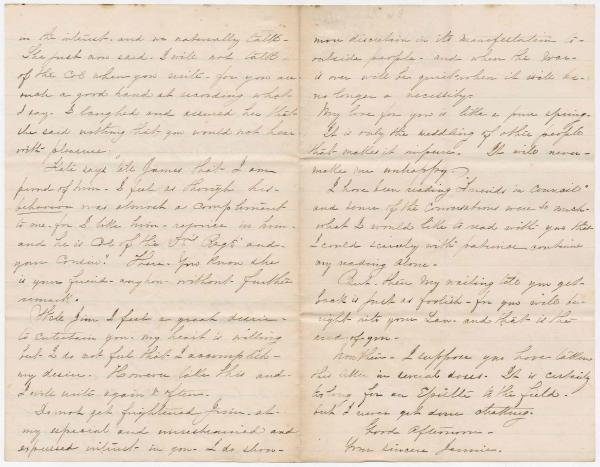 in the interest. and we naturally talk-
She just now said. I will not talk-
of the Col when you write - for you are
such a good hand at recording what
I say. I laughed and assured her that
she said nothing that you would not hear
with pleasure.
Kate says "tell James that I am
proud of him. I feel as though his
behavior was almost a compliment
to me. for I like him - rejoice in him -
and he is Col of the Regt and
your Cousin". There. You know she
is your friend - anyhow - without further
remark.
Well Jim I feel a great desire -
to entertain you. my heart is willing
but I do not feel that I accomplish -
my desire. However take this and
I will write again & often.
Do not get frightened Jim. at
my especial and unrestrained and
expressed interest in you. I do show -
more discretion in its manifestation to -
outside people - and when the War -
is over will be quiet when it will be -
no longer a necessity.
My love for you is like a pure spring.
It is only the meddling of other people
that makes it impure. It will never -
make me unhappy.
I have been reading "Friends in Council"
and some of the Conversations were so much -
what I would like to read with you that
I could scarcely with patience continue
my reading alone.
But - there my waiting till you get -
back is just as foolish - for you will be
right into your Law - and that is the
end of you -
I suppose you have taken
this letter in several doses. It is certainly
too long for an Epistle to the field.
but I never get done chatting.
Good Afternoon -
Your Sincere Jennie.